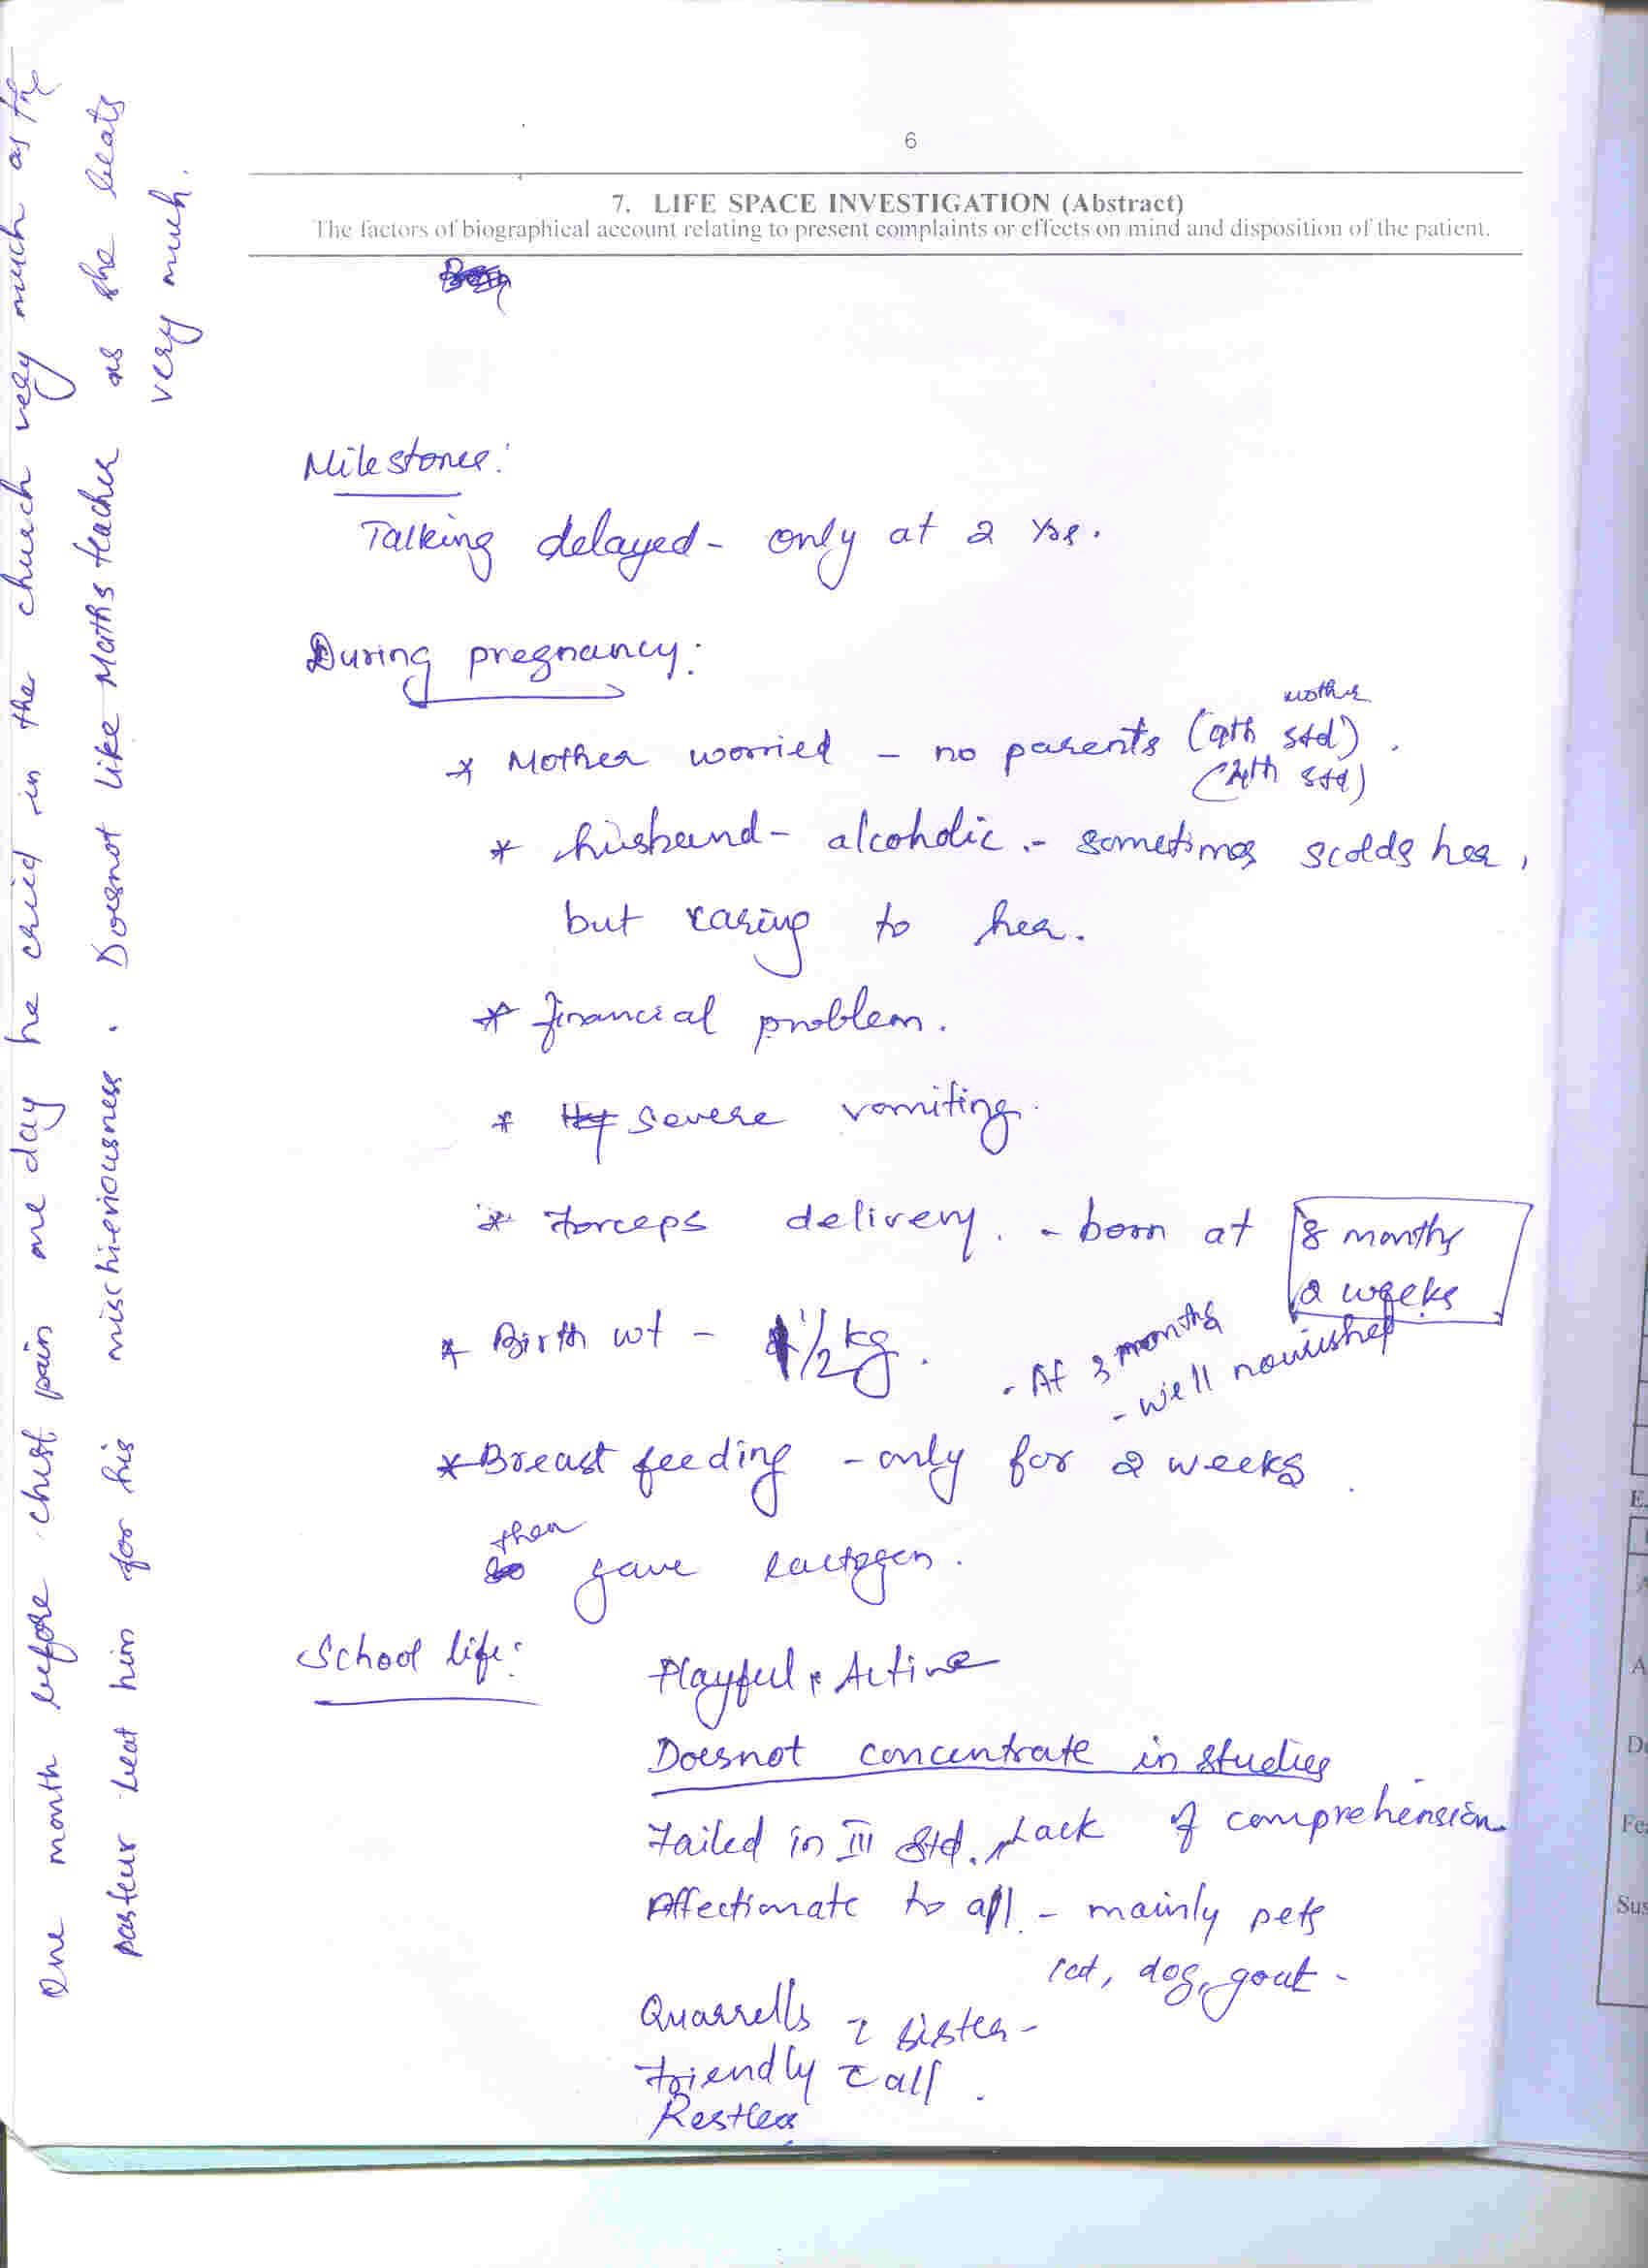 6
7. LIFE SPACE INVESTIGATION (Abstract)
The factors of biographical account relating to present complaints or effects on mind and disposition of the patient.
Milestones:
Talking delayed - only at 2 yrs.
During pregnancy:
mother
* Mother worried - no parents (9th std).
(4th std)
* husband - alcoholic - sometimes scolds her,
but caring to her.
* financial problem.
* severe vomiting.
* Forceps delivery. - born at 8 months
2 weeks
* Birth wt - 1/2 kg. - At 3 months
- well nourished
* Breast feeding - only for 2 weeks.
then
gave lactogen.
School life: Playful, Active
Doesnot concentrate in studies
Failed in III Std. Lack of comprehension
Affectionate to all - mainly pets
cat, dog, goat -
Quarrells c̄ sister -
Friendly c̄ all.
Restless
One month before chest pain one day he cried in the church very much as the
pasteur beat him for his mischieviousness. Doesnot like Maths teacher as she beats
very much.
E.
A
De
Fe
Sus